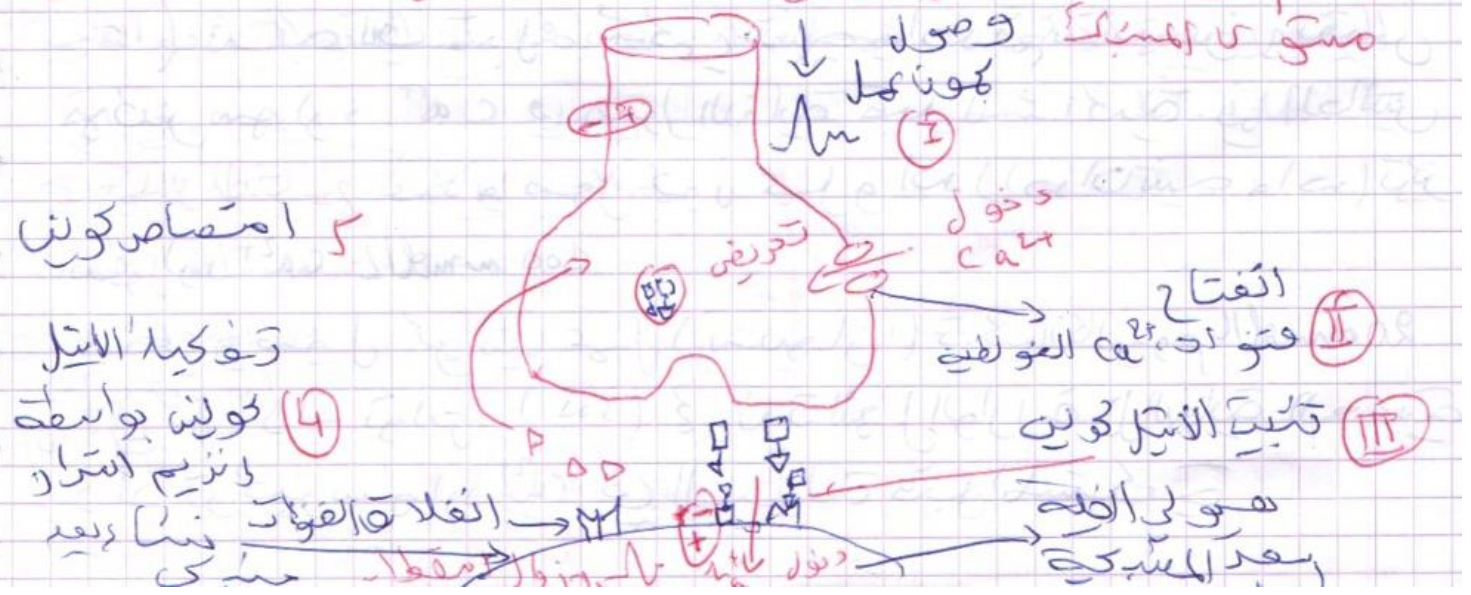 مستوى المشبك
وصول
كمون عمل
I
- +
دخول
Ca²⁺
تحريض
انفتاح
قنوات Ca²⁺ الفولطية
II
تثبيت الأستيل كولين
III
هيولي الخلية
بعد المشبكية
5 امتصاص كولين
تفكيك الأستيل
كولين بواسطة
إنزيم استراز
4
انغلاق القنوات
غشاء بعد
مشبكي
- +
دخول
زوال استقطاب